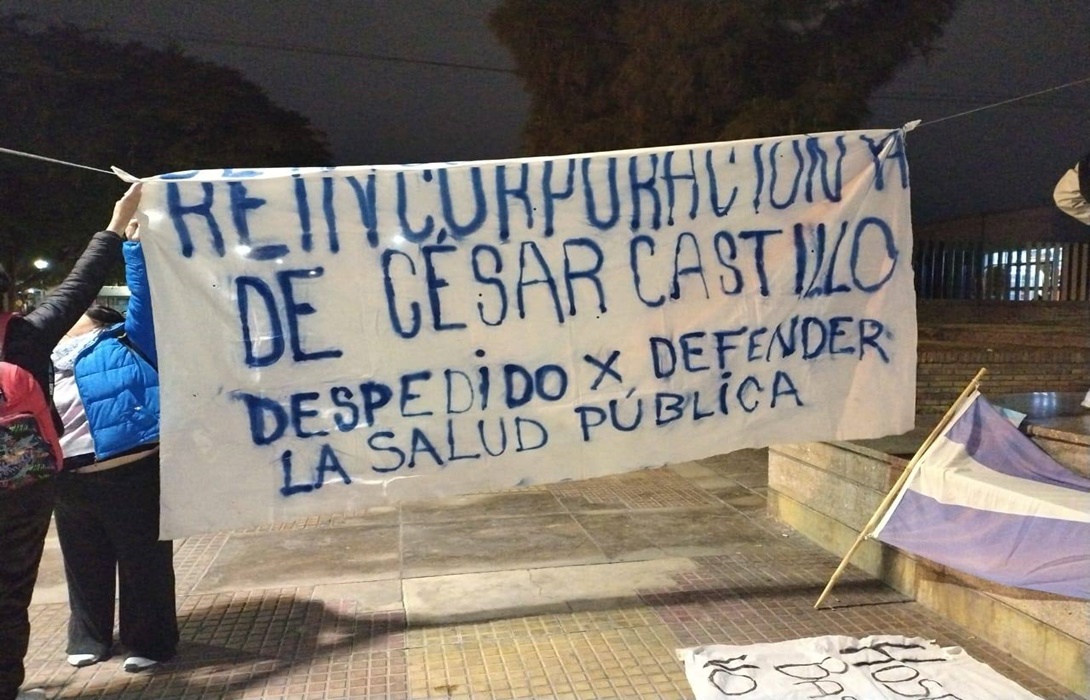 REINCORPORACIÓN YA
DE CÉSAR CASTILLO
DESPEDIDO X DEFENDER
LA SALUD PÚBLICA